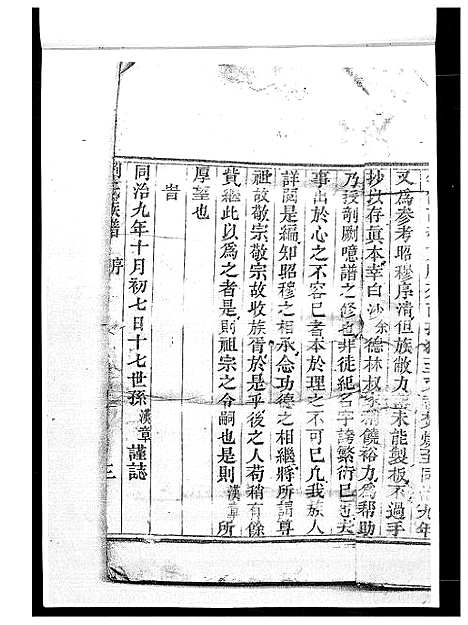 又為參考昭穆序清但族敞力未能製板不過手
抄以存眞本幸白沙徐德林叔家稍饒裕力為幫助
乃授剞劂噫譜之修也非徒紀名字誇繁衍已也夫
事出於心之不容已者本於理之不可已凡我族人
詳閱是編知昭穆之相承念功德之相繼將所謂尊
祖故敬宗敬宗故收族胥於是乎後之人苟稍有餘
貲繼此以為之者是則祖宗之令嗣也是則漢章所
厚望也
旹
同治九年十月初七日十七世孫漢章謹誌
族譜 序 三